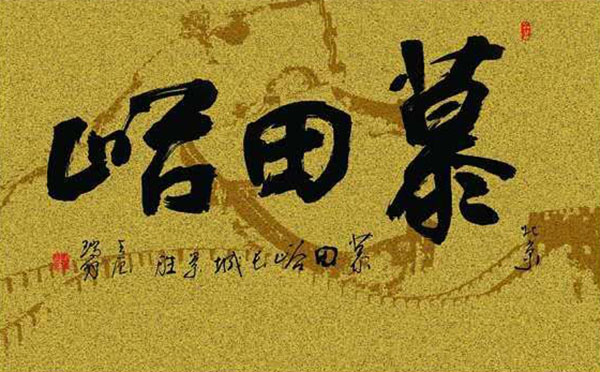 慕田峪
北京
慕田峪长城景胜